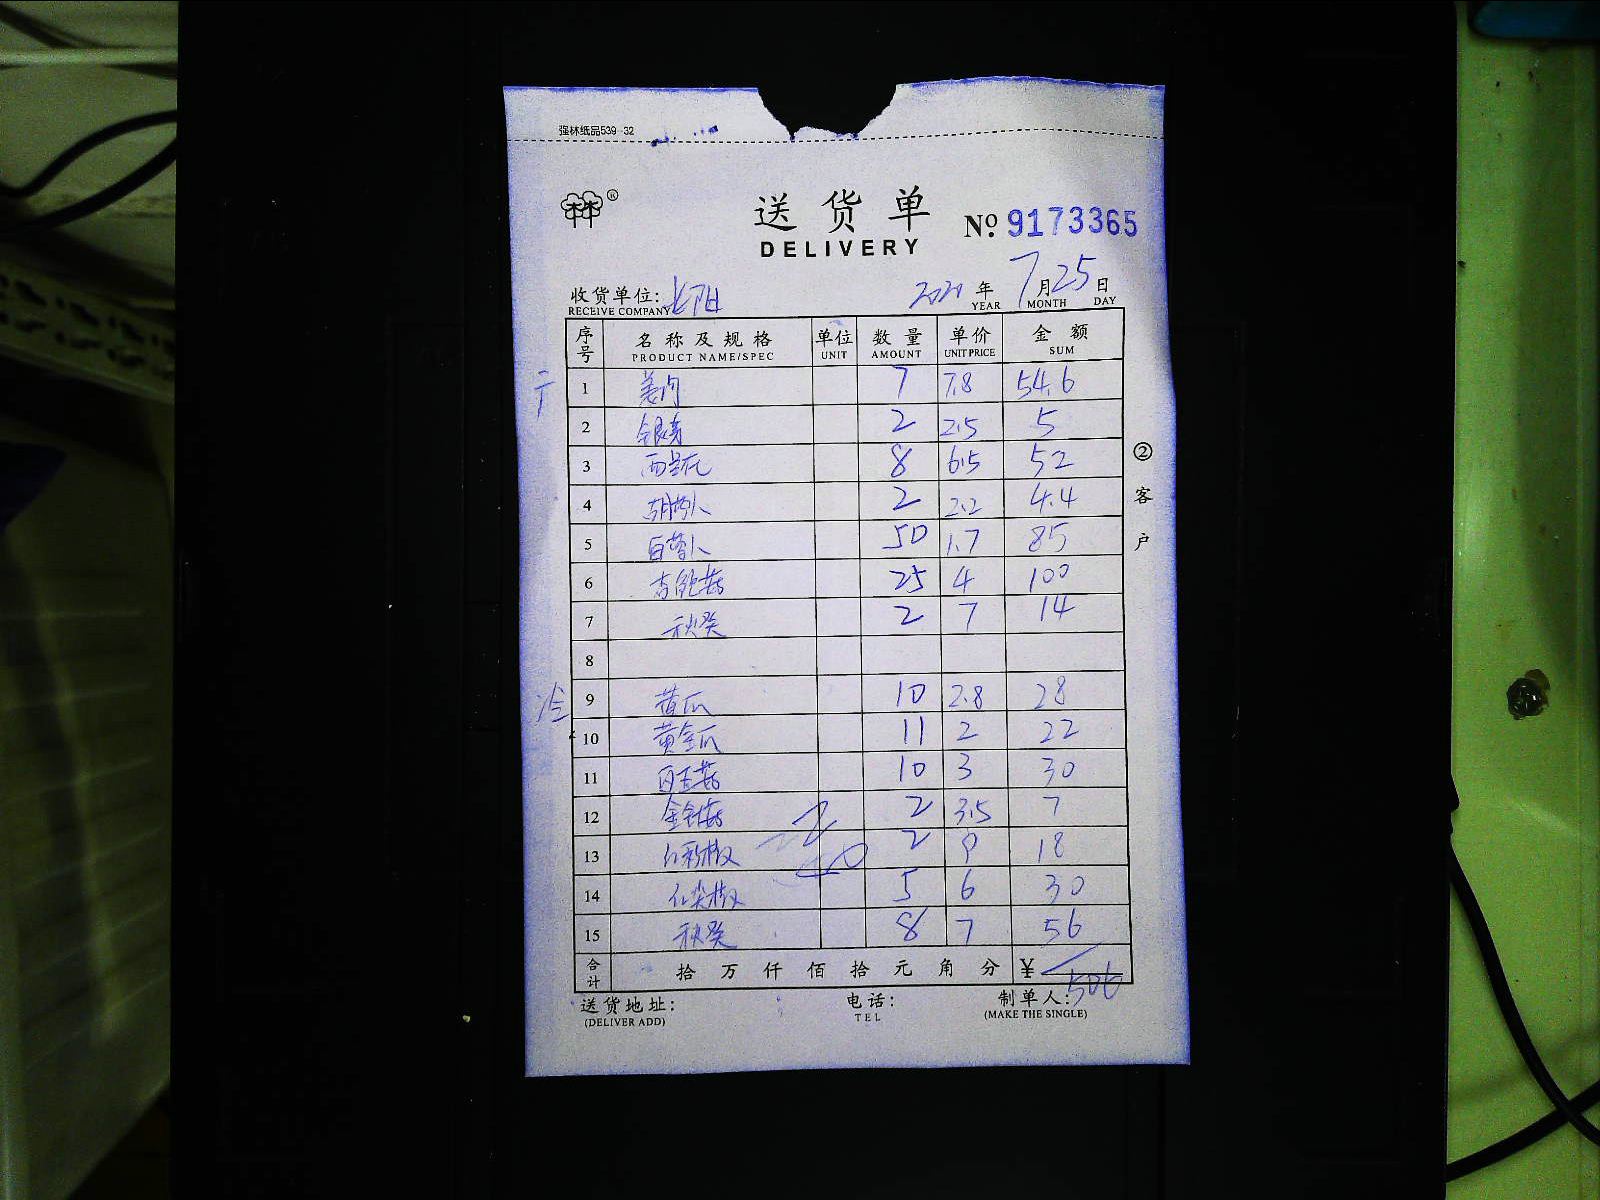 强林纸品539-32
林®
送货单 No. 9173365
DELIVERY
收货单位: 长阳 2021 年 7 月 25 日
RECEIVE COMPANY YEAR MONTH DAY
序号 名称及规格 单位 数量 单价 金额
PRODUCT NAME/SPEC UNIT AMOUNT UNIT PRICE SUM
1 姜肉 7 7.8 54.6
2 银芽 2 2.5 5
3 西兰花 8 6.5 52
4 胡萝卜 2 2.2 4.4
5 白萝卜 50 1.7 85
6 杏鲍菇 25 4 100
7 秋葵 2 7 14
8
冷 9 黄瓜 10 2.8 28
10 黄金瓜 11 2 22
11 白玉菇 10 3 30
12 金针菇 2 3.5 7
13 红彩椒 2 9 18
14 红尖椒 5 6 30
15 秋葵 8 7 56
合计 拾万仟佰拾元角分 ¥ 506
送货地址: 电话: 制单人:
(DELIVER ADD) TEL (MAKE THE SINGLE)
②客户